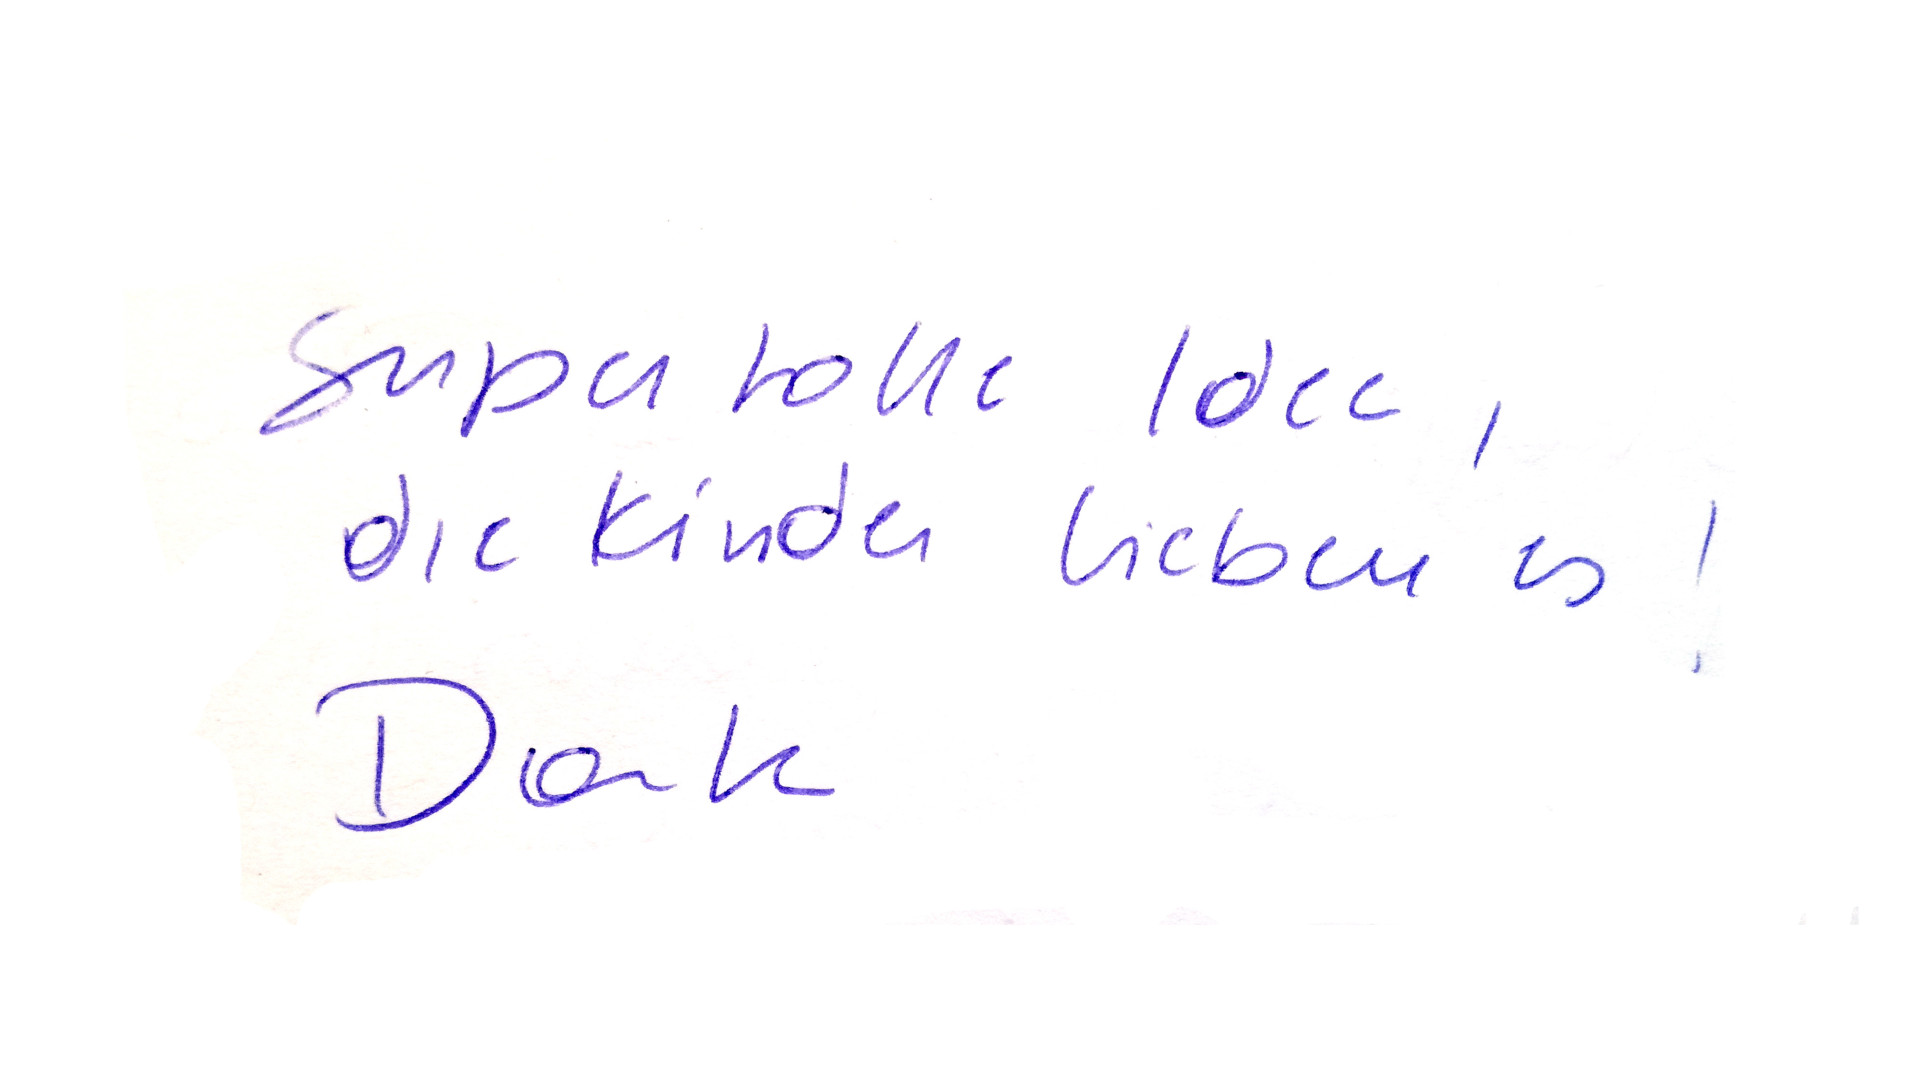 Super tolle Idee,
die Kinder lieben es!
Dank